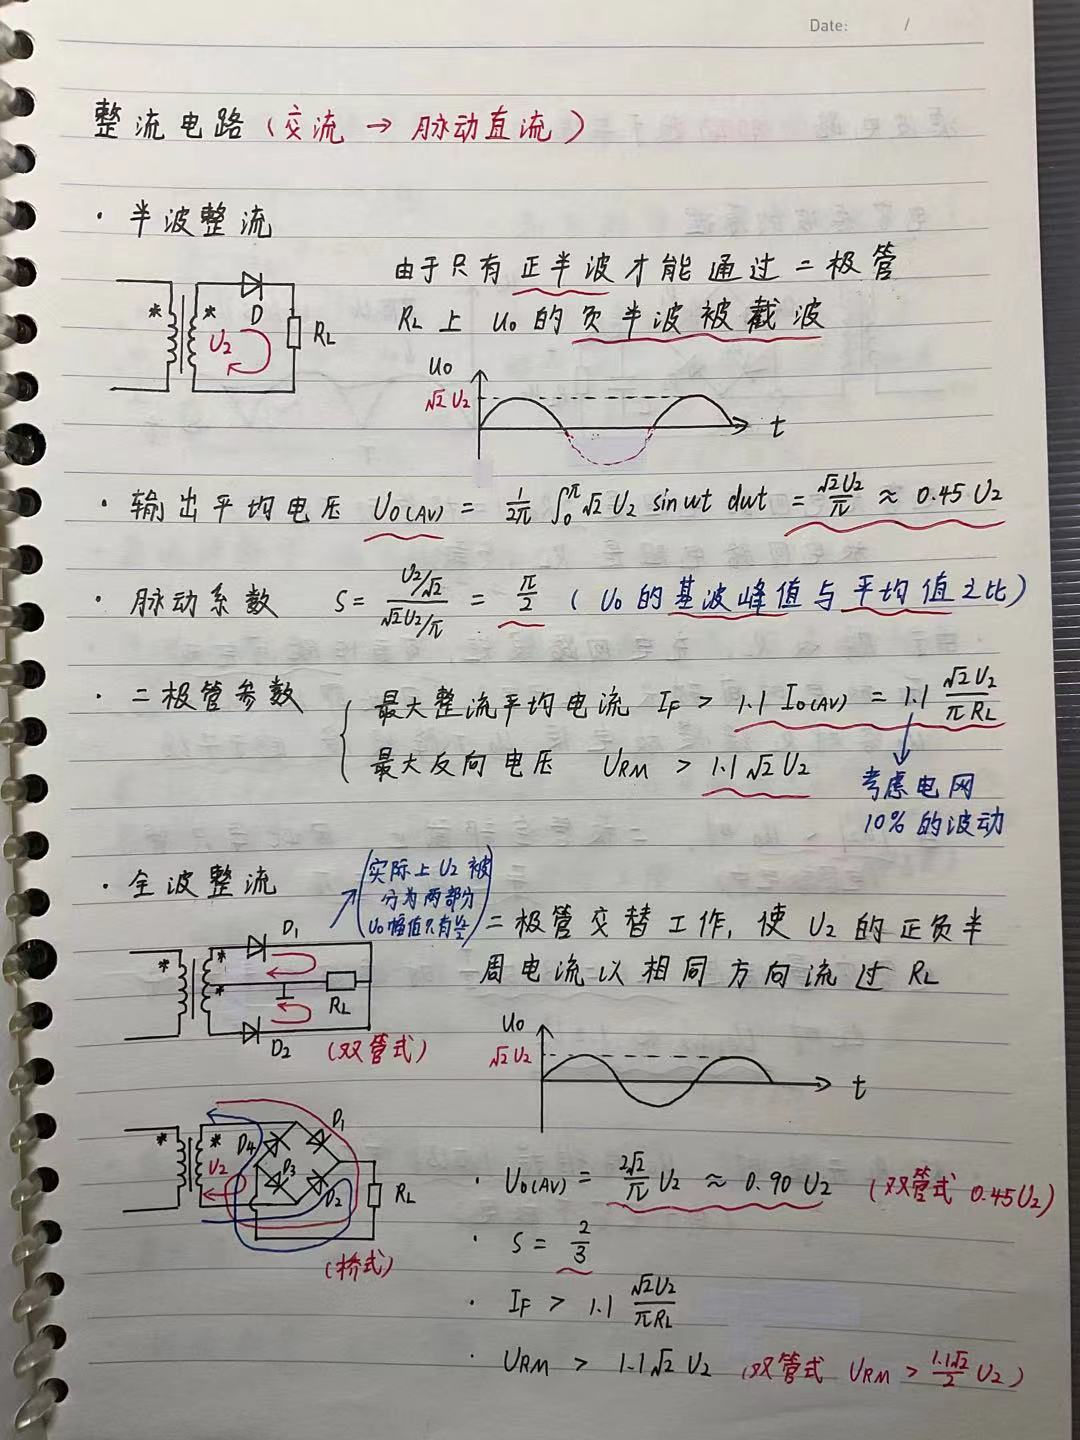 Date: /
整流电路（交流 → 脉动直流）
· 半波整流
由于只有正半波才能通过二极管
RL上 uo的负半波被截波
* * D U2 RL
uo
√2 U2
t
· 输出平均电压 UO(AV) = 1/2π ∫₀^π √2 U2 sin wt dwt = √2U2/π ≈ 0.45 U2
· 脉动系数 S = (U2/√2)/(√2U2/π) = π/2 （uo的基波峰值与平均值之比）
· 二极管参数 { 最大整流平均电流 IF > 1.1 IO(AV) = 1.1 √2U2/πRL
最大反向电压 URM > 1.1 √2 U2
考虑电网
10% 的波动
· 全波整流
（实际上 U2 被
分为两部分
uo幅值只有 ）
二极管交替工作, 使 U2 的正负半
周电流以相同方向流过 RL
* * * D1 RL D2
（双管式）
uo
√2 U2
t
* * U2 D4 D1 D3 D2 RL
（桥式）
· UO(AV) = 2√2/π U2 ≈ 0.90 U2 （双管式 0.45U2）
· S = 2/3
· IF > 1.1 √2U2/πRL
· URM > 1.1√2 U2 （双管式 URM > 1.1√2/2 U2）